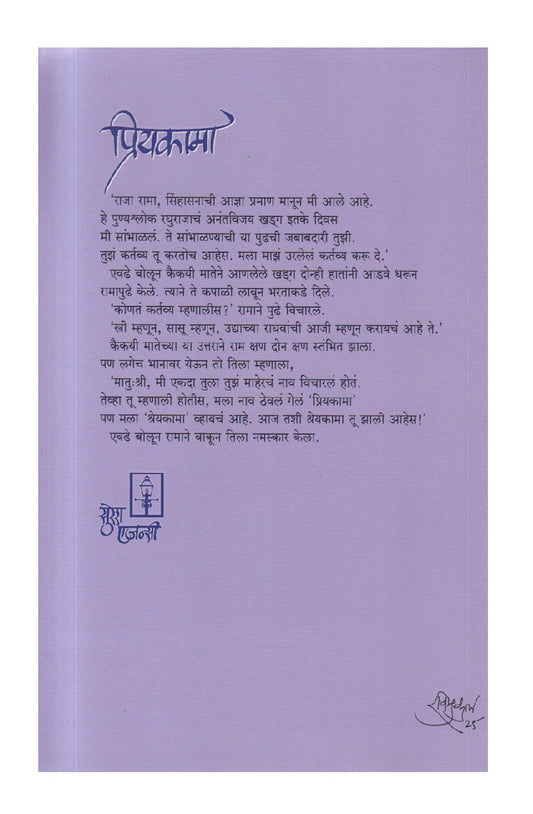 प्रियकामा
'राजा रामा, सिंहासनाची आज्ञा प्रमाण मानून मी आले आहे.
हे पुण्यश्लोक रघुराजाचं अनंतविजय खड्ग इतके दिवस
मी सांभाळलं. ते सांभाळण्याची या पुढची जबाबदारी तुझी.
तुझं कर्तव्य तू करतोच आहेस. मला माझं उरलेलं कर्तव्य करू दे.'
एवढे बोलून कैकयी मातेने आणलेले खड्ग दोन्ही हातांनी आडवे धरून
रामापुढे केले. त्याने ते कपाळी लावून भरताकडे दिले.
'कोणतं कर्तव्य म्हणालीस?' रामाने पुढे विचारले.
'स्त्री म्हणून, सासू म्हणून, उद्याच्या राघवांची आजी म्हणून करायचं आहे ते.'
कैकयी मातेच्या या उत्तराने राम क्षण दोन क्षण स्तंभित झाला.
पण लगेच भानावर येऊन तो तिला म्हणाला,
'मातुःश्री, मी एकदा तुला तुझं माहेरचं नाव विचारलं होतं.
तेव्हा तू म्हणाली होतीस, मला नाव ठेवलं गेलं 'प्रियकामा'
पण मला 'श्रेयकामा' व्हायचं आहे. आज तशी श्रेयकामा तू झाली आहेस!'
एवढे बोलून रामाने वाकून तिला नमस्कार केला.
सुरेश
एजन्सी
२५